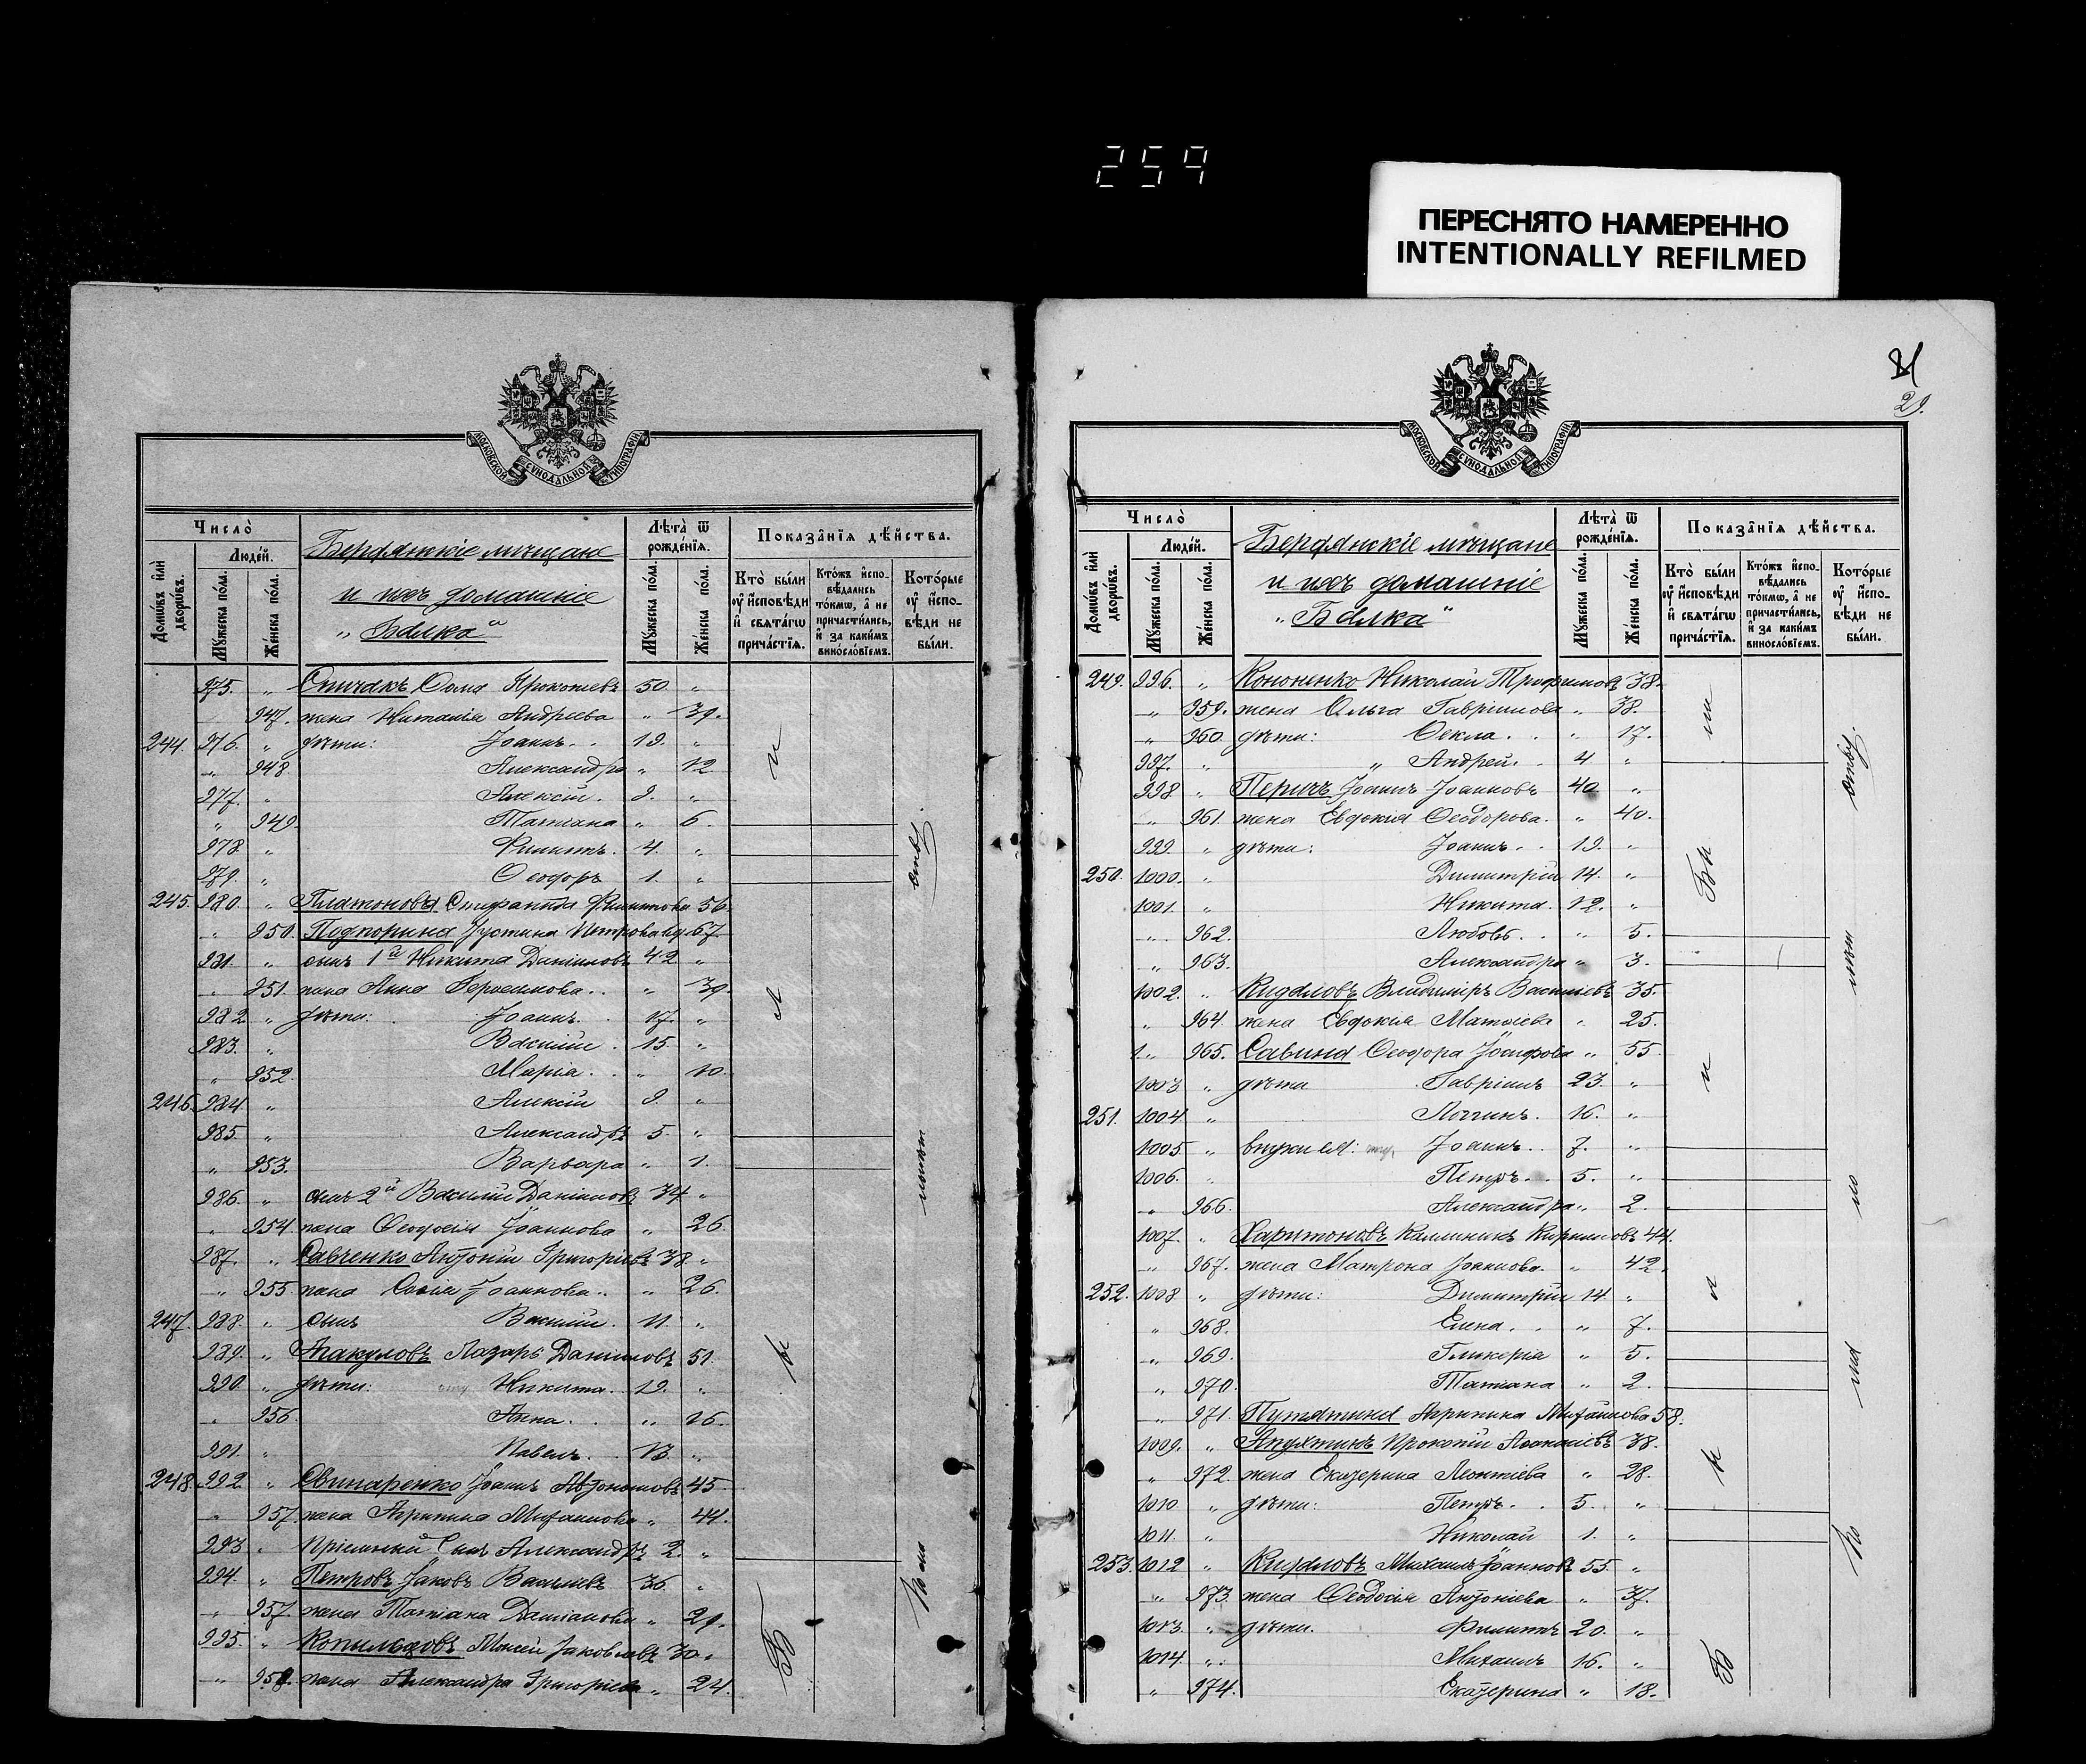 259
ПЕРЕСНЯТО НАМЕРЕННО
INTENTIONALLY REFILMED
МОСКОВСКОЙ СѴНОДАЛЬНОЙ ТИПОГРАФІИ
Число̀
Людей.
Домѡвъ и҆лѝ дворѡвъ.
Мꙋжеска по́ла.
Же́нска по́ла.
Бердянскіе мѣщане
и ихъ домашніе
„Балка“
Лѣта̀ ѿ рожде́нїѧ.
Мꙋжеска по́ла.
Же́нска по́ла.
Показа̂нїѧ дѣ́йства.
Кто̀ бы́ли ᲂу҆ и҆сповѣ́ди и҆ свѧта́гѡ прича́стїѧ.
Кто́жъ и҆спо- вѣ́дались то́кмѡ, а҆ не причасти́лись, и҆ за каки́мъ виносло́вїемъ.
Кото́рые ᲂу҆ и҆спо- вѣ́ди не бы́ли.
975. „ Спичакъ Ѳома Прокопіевъ 50. „
947. жена Наталія Андреева „ 39.
244. 976. „ дѣти: Іоаннъ. . 19. „
„ 948. Александра „ 12
977. „ Алексій. 9. „
„ 949. Татіана „ 6.
978. „ Филиппъ. 4. „
979. „ Ѳеодоръ 1. „
245. 980. „ Платонова Филиппова 56.
„ 950. Подпорина Іустина Петрова вд. 67.
981. „ сынъ 1й Никита Даніиловъ 42 „
„ 951. жена Анна Герасимова. . „ 39.
982 „ дѣти: Іоаннъ. 17. „
983. „ Василій. 15. „
„ 952. Марія. . „ 10.
246. 984. „ Алексій 9. „
985. „ Александръ 5. „
„ 953. Варвара „ 1.
986. „ сынъ 2й Василій Даніиловъ 34 „
„ 954. жена Ѳеодосія Іоаннова „ 26.
987. „ Савченко Антоній Григоріевъ 38. „
„ 955. жена Софія Іоаннова. . „ 26.
247. 988. „ сынъ Василій. 11. „
989. „ Акакуловъ Лазарь Даніиловъ 51.
990. „ дѣти: Никита. 19. „
„ 956. Анна. . „ 16.
991. „ Павелъ. 13. „
248. 992. „ Свинаренко Іоаннъ Автономовъ 45.
„ 957. жена Агрипина Михаилова „ 44.
993. „ Пріемный сынъ Александръ 2. „
994. „ Петровъ Іаковъ Василіевъ 36. „
„ 957. жена Татіана Даміанова „ 29.
995. „ Копыльцовъ Моисей Іаковлевъ 30. „
„ 958. жена Александра Григоріева „ 24.
29.
МОСКОВСКОЙ СѴНОДАЛЬНОЙ ТИПОГРАФІИ
Число̀
Людей.
Домѡвъ и҆лѝ дворѡвъ.
Мꙋжеска по́ла.
Же́нска по́ла.
Бердянскіе мѣщане
и ихъ домашніе
„Балка“
Лѣта̀ ѿ рожде́нїѧ.
Мꙋжеска по́ла.
Же́нска по́ла.
Показа̂нїѧ дѣ́йства.
Кто̀ бы́ли ᲂу҆ и҆сповѣ́ди и҆ свѧта́гѡ прича́стїѧ.
Кто́жъ и҆спо- вѣ́дались то́кмѡ, а҆ не причасти́лись, и҆ за каки́мъ виносло́вїемъ.
Кото́рые ᲂу҆ и҆спо- вѣ́ди не бы́ли.
249. 996. „ Кононенко Николай Трифоновъ 38.
„ 959. жена Ольга Гавріилова „ 38.
„ 960. дѣти: Ѳекла. . „ 17.
997. „ „ Андрей. . 4 „
998 „ Перичъ Іоаннъ Іоанновъ 40 „
„ 961. жена Евдокія Ѳеодорова. „ 40.
999. „ дѣти: Іоаннъ. . 19. „
250. 1000. „ Димитрій 14. „
1001. „ Никита. 12. „
„ 962. Любовь. . „ 5.
„ 963. Александра „ 3.
1002. „ Кидаловъ Владиміръ Василіевъ 35.
„ 964. жена Евдокія Матѳіева „ 25.
„ 965. Савина Ѳеодора Іосифова „ 55.
1003 „ дѣти Гавріилъ 23. „
251. 1004. „ Логгинъ. 16. „
1005 „ внуки Іоаннъ. . 7. „
1006. „ Петръ. . 5. „
„ 966. Александра „ 2.
1007. „ Харитоновъ Каллиникъ Кирилловъ 44.
„ 967. жена Матрона Іоаннова. „ 42.
252. 1008 „ дѣти: Димитрій 14 „
„ 968. Елена. . „ 7.
„ 969. Гликерія „ 5.
„ 970. Татіана „ 2.
„ 971. Путятина Агрипина Михаилова 58.
1009. „ Апухтинъ Прокопій Аѳанасіевъ 38.
„ 972. жена Екатерина Леонтіева „ 28.
1010. „ дѣти: Петръ. . 5. „
1011. „ Николай 1. „
253. 1012 „ Кидаловъ Михаилъ Іоанновъ 55. „
„ 973. жена Ѳеодосія Антоніева „ 37.
1013. „ дѣти. Филиппъ 20. „
1014. „ Михаилъ 16. „
„ 974. Екатерина „ 18.